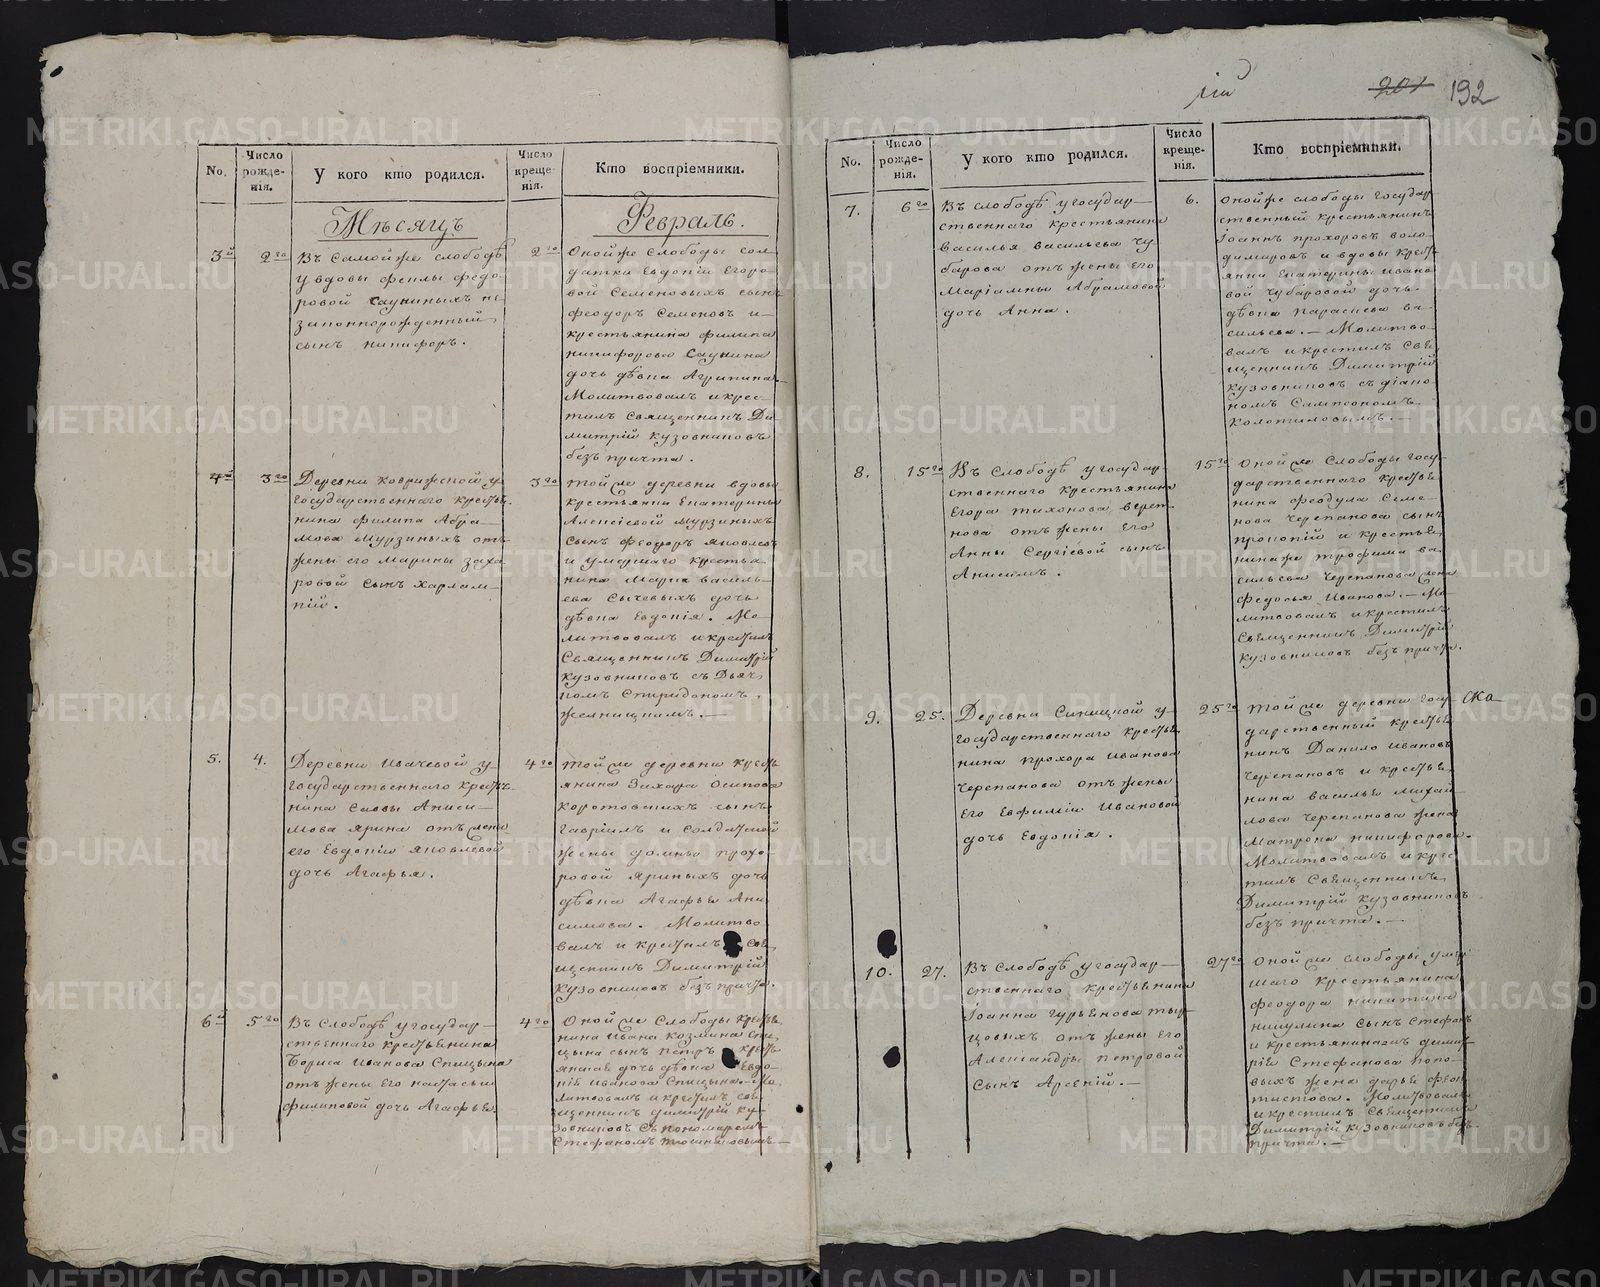 192
No.
Число рожде-нія.
У кого кто родился.
Число креще-нія.
Кто воспріемники.
Мѣсяцъ
Февраль.
3й
2го
Въ Самой же слободѣ
у вдовы феклы федо-
ровой Саукиныхъ не-
законнорожденный
сынъ никифоръ.
2го
Оной же Слободы сол-
датки Евдокіи Егоро-
вой Семеновыхъ сынъ
феодоръ Семеновъ и
крестьянина филипа
никифорова Саукина
дочь дѣвка Агрипина
Молитвовалъ и крес-
тилъ Священникъ Ди-
митрій кузовниковъ
безъ причта.
4й
3го
Деревни ковриженой у
государственнаго крестья-
нина филипа Абра-
мова Мурзиныхъ отъ
жены его Марины заха-
ровой сынъ харлам-
пій.
3го
той же деревни вдовы
крестьянки Екатерины
Алексіевой Мурзиныхъ
сынъ феодоръ яковлевъ
и умершаго крестья-
нина Марка василь-
ева Сычевыхъ дочь
дѣвка Евдокія. Мо-
литвовалъ и крестилъ
Священникъ Димитрій
кузовниковъ съ Дьяч-
комъ Спиридономъ
5.
4.
Деревни Ивачевой у
государственнаго крестья-
нина Саввы Аниси-
мова ярина отъ жены
его Евдокіи яковлевой
дочь Агафья.
4го
той же деревни кресть-
янина Захара Осипова
коротовскихъ сынъ
Гавріилъ и солдатской
жены домны прохо-
ровой яриныхъ дочь
дѣвка Агафья Ани-
симова. Молитво-
валъ и крестилъ Свя-
щенникъ Димитрій
кузовниковъ безъ причта.
6й
5го
Въ слободѣ у государ-
ственнаго крестьянина
Бориса Иванова Спицына
отъ жены его настасьи
филиповой дочь Агафья
4го
Оной же Слободы крестья-
нина Ивана козмина Спи-
цына сынъ петръ кресть-
дочь дѣвка Евдо-
кія Иванова Спицына. Мо-
литвовалъ и крестилъ свя-
щенникъ димитрій ку-
зовниковъ съ пономаремъ
Стефаномъ
No.
Число рожде-нія.
У кого кто родился.
Число креще-нія.
Кто воспріемники.
7.
6го
Въ слободѣ у государ-
ственнаго крестьянина
василья васильева Чу-
барова отъ жены его
Маріамны Абрамовой
дочь Анна.
6.
Оной же слободы государ-
ственный крестьянинъ
Іоаннъ прохоровъ воло-
димировъ и вдовы кресть-
янки Екатерины ивано-
вой Чубаровой дочь
дѣвка параскева ва-
сильева. — Молитво-
валъ и крестилъ Свя-
щенникъ Димитрій
кузовниковъ съ діако-
номъ Сампсономъ
колотиловымъ. —
8.
15го
Въ слободѣ у государ-
ственнаго крестьянина
Егора тихонова верет-
нова отъ жены его
Анны Сергіевой сынъ
Анисимъ.
15го
Оной же Слободы госу-
дарственнаго крестья-
нина феодула Семе-
нова Черепанова сынъ
прокопій и крестья-
нина трофима ва-
сильева Черепанова жена
федосья Иванова. — Мо-
литвовалъ и крестилъ
Священникъ Димитрій
кузовниковъ безъ причта.
9.
25.
Деревни Синицкой у
государственнаго крестья-
нина прохора Иванова
Черепанова отъ жены
его Евфиміи Ивановой
дочь Евдокія.
25го
той же деревни госу-
дарственный крестья-
нинъ Данило Ивановъ
Черепановъ и крестья-
нина василья михай-
лова Черепанова жена
Матрона никифорова.
Молитвовалъ и крес-
тилъ Священникъ
Димитрій кузовниковъ
безъ причта. —
10.
27.
Въ Слободѣ у государ-
ственнаго крестьянина
Іоанна гурьенова тыр-
цовыхъ отъ жены его
Александры петровой
сынъ Арсеній. —
27го
Оной же слободы умер-
шаго крестьянина
феодора никитина
никулина сынъ Стефанъ
и крестьянина дими-
трія Стефанова попо-
выхъ жена дарья феок-
тистова. Молитвовалъ
и крестилъ Священникъ
Димитрій кузовниковъ безъ
причта. —
METRIKI.GASO-URAL.RU